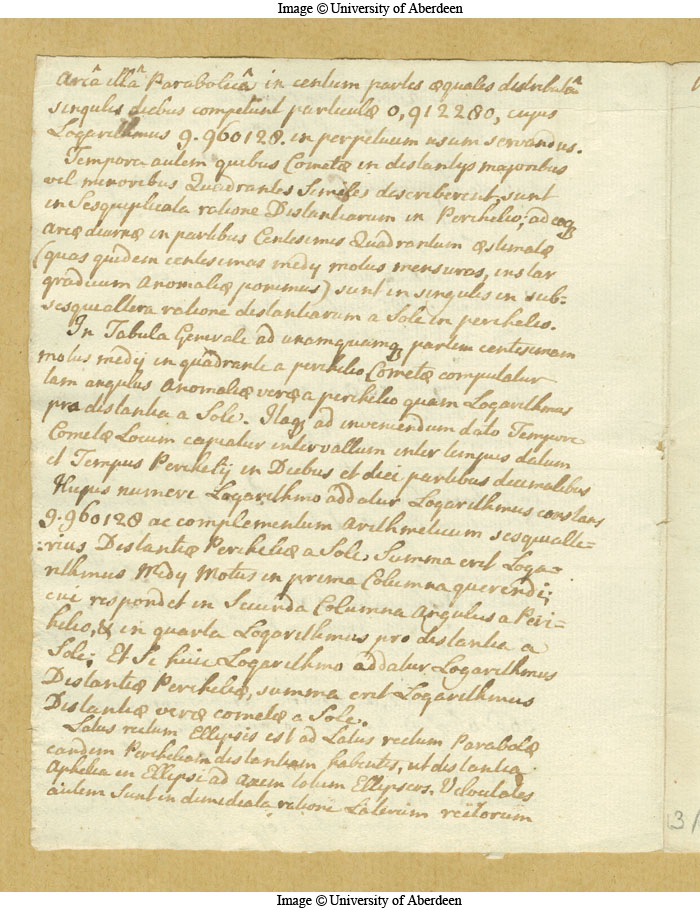 Image © University of Aberdeen
Areâ illâ Parabolicâ in centum partes æquales distributâ
singulis diebus competunt particulæ 0,912280, cujus
Logarithmus 9.960128. in perpetuum usum servandus.
Tempora autem quibus Cometæ in distantijs majoribus
vel minoribus Quadrantes Similes describerent, sunt
in Sesquiplicata ratione Distantiarum in Perihelio; adeoq
Areæ diurnæ in partibus Centesimis Quadrantum æstimatæ
(quas quidem centesimas medij motus mensuras, instar
graduum Anomaliæ ponimus) sunt in singulis in sub-
sesquialtera ratione distantiarum a Sole in perihelio.
In Tabula Generali ad unamquamq partem centesimam
motus medij in quadrante a perihelio Cometæ computatur
tam angulus Anomaliæ veræ a perihelio quam Logarithmus
pro distantia a Sole. Itaq ad inveniendum dato Tempore
Cometæ Locum capiatur intervallum inter tempus datum
et Tempus Perihelij in Diebus et diei partibus decimalibus
Hujus numeri Logarithmo addatur Logarithmus constans
9.960128 ac complementum Arithmeticum sesqualte-
:rius Distantiæ Periheliæ a Sole, Summa erit Loga-
rithmus Medij Motus in prima Columna querendi;
cui respondet in Secunda Columna Angulus a Peri-
helio, & in quarta Logarithmus pro distantia a
Sole; Et Si huic Logarithmo addatur Logarithmus
Distantiæ Periheliæ, summa erit Logarithmus
Distantiæ veræ cometæ a Sole.
Latus rectum Ellipsis est ad Latus rectum Parabolæ
eandem Periheliam distantiam habentis, ut distantia
Aphelia in Ellipsi ad axem totum Ellipseos. Velocitates
autem Sunt in dimidiata ratione Laterum rectorum
3/
Image © University of Aberdeen